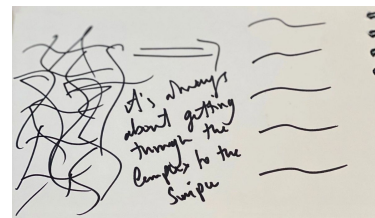 it's always
about getting
through the
complex to the
simple